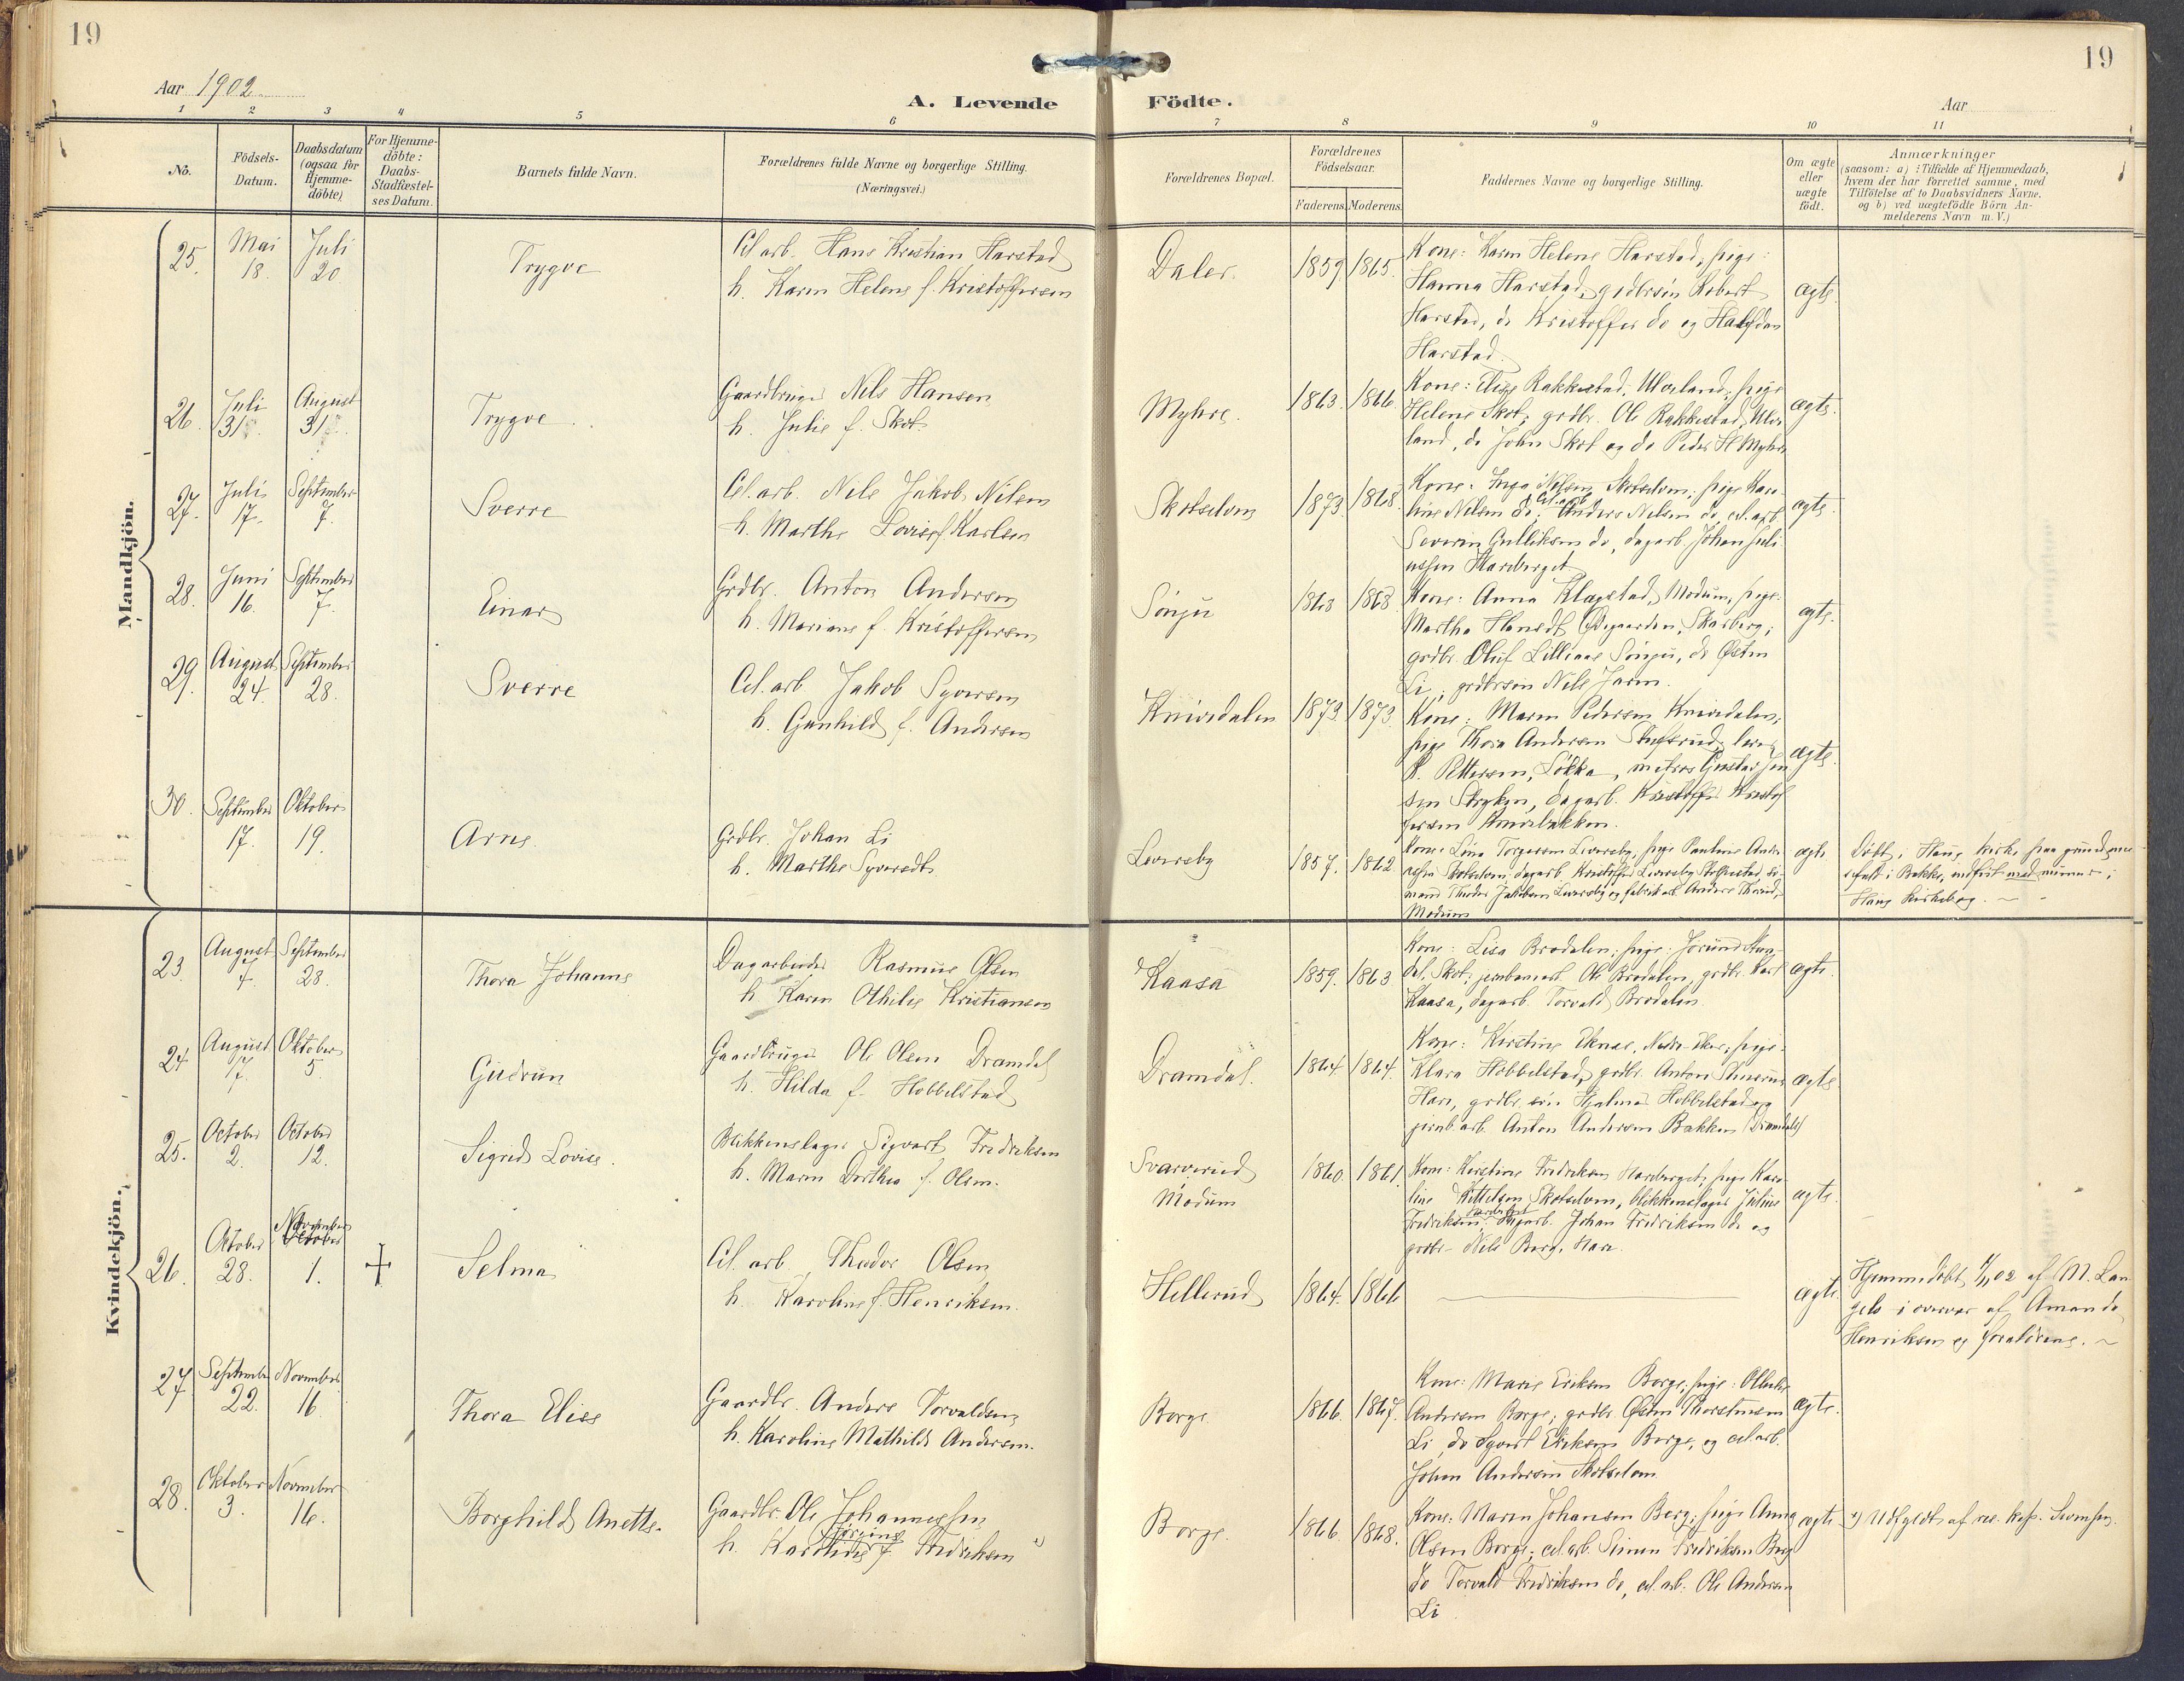 19
19
Aar 1902
A. Levende Födte.
Aar
1 2 3 4 5 6 7 8 9 10 11
No.
Födsels-
Datum.
Daabsdatum
(ogsaa for
Hjemme-
döbte)
For Hjemme-
döbte:
Daabs-
Stadfæstel-
ses Datum.
Barnets fulde Navn.
Forældrenes fulde Navne og borgerlige Stilling.
(Næringsvei.)
Forældrenes Bopæl.
Forældrenes
Födselsaar.
Faderens. Moderens.
Faddernes Navne og borgerlige Stilling.
Om ægte
eller
uægte
födt.
Anmærkninger
(saasom: a) i Tilfælde af Hjemmedaab,
hvem der har forrettet samme, med
Tilföielse af to Daabsvidners Navne.
og b) ved uægtefödte Börn An-
melderens Navn m. V.)
Mandkjön.
25. Mai 18. Juli 20 Trygve
Cel. arb. Hans Kristian Harstad
h. Karen Helene f. Kristoffersen
Daler. 1859. 1865.
Kone: Karen Helene Harstad, pige:
Hanna Harstad, grdbrsön Robert
Harstad, do Kristoffer do og Halfdan
Harstad.
ægte
26. Juli 31. August 31. Trygve
Gaardbruger Nils Hansen
h. Julie f. Skot.
Myhre. 1863. 1866.
Kone: Elise Rakkestad, Ulveland; pige
Helene Skot; grdbr. Ole Rakkestad, Ulve
land, do John Skot og do Peder H Myhre
ægte.
27. Juli 17. September 7. Sverre
Cel. arb. Nils Jakob Nilsen
h. Marthe Lovise f. Karlsen
Skotselven 1873. 1868.
Kone: Inga Nilsen Skotselven; pige Karo-
line Nilsen do; Cel. arb. Anders Nilsen do, cel. arb
Severin Gulliksen do, dagarb. Johan Juli
ussen Hareberget
ægte.
28. Juni 16. September 7. Einar
Grdbr. Anton Andersen
h. Mariane f. Kristoffersen
Sönju 1868 1868.
Kone: Anna Klagstad, Modum, pige:
Martha Hansdt Ödegaarden, Skarberg;
grdbr. Oluf Lilliaas Sönju, do Östen
Li, grdbrsön Nils Jaren.
ægte.
29. August 24. September 28. Sverre
Cel. arb Jakob Syversen
h. Gunhild f. Andersen
Knivedalen 1873. 1873.
Kone: Maren Pedersen Knivedalen;
pige Thora Andersen
P. Pettersen, Lökka, Gustav Jen
sen Stryken, dagarb. Kristoffer Kristof
fersen
ægte.
30. September 17. Oktober 19. Arne.
Grdbr. Johan Li
h. Marthe Syversdt.
Leversby 1857. 1862
Kone: Lina Torgersen Leversby, pige Pauline Ander
dagarb. Kristoffer Leversby
Thodor Jakobsen Leversby og fabrikarb Anders
Modum
ægte
Döbt i Haug kirke paa grund
i Bakke, indfört med numer i
Haug Kirkebog.
Kvindekjön.
23. August 7. September 28. Thora Johanne
Dagarbeider Rasmus Olsen
h. Karen Othilie Kristiansen
Kaasa 1859. 1863
Kone: Lisa Bredalen; pige: Jörund
dal, Skot; jernbanearb. Ole Bredalen, grdbr. Karl
Kaasa, dagarb. Torvald Bredalen.
ægte.
24 August 17. Oktober 5. Gudrun
Gaardbruger Ole Olsen Dramdal
h. Hilda f. Hobbelstad
Dramdal. 1864. 1864.
Kone: Kirstine Eknes, Nedre Eker; pige:
Klara Hobbelstad, grdbr. Anton
Hare, grdbr. sön Hjalmar Hobbelstad og
jernb. arb. Anton Andersen Bakken (Dramdal)
ægte
25. October 2. October 12. Sigrid Lovise.
Blikkenslager Sigvart Fredriksen
h. Maren Dorthea f. Olsen.
Svarverud
Modum 1860. 1861.
Kone: Kirstine Fredriksen Hareberget; pige Karo
line Kittelsen Skotselven, blikkenslager Julius
Fredriksen Hareberget, dagarb. Johan Fredriksen do og
grdbr Nils Berg, Hare.
ægte.
26. Oktober 28. November 1. + Selma
Cel. arb Theodor Olsen
h. Karoline f. Henriksen.
Hellerud 1864. 1866
ægte.
Hjemmedöbt 1/11 02 af M. Lan
gelo i overvær af Amanda
Henriksen og forældrene.
27 September 22. November 16 Thora Elise
Gaardbr. Anders Torvaldsen
h. Karoline Mathilde Andersen.
Borge. 1866. 1867.
Kone: Marie Eriksen Borge; pige:
Andersen Borge; grdbr. Östen Thorstensen
Li, do Syvert Eriksen Borge, og cel. arb.
Johan Andersen Skotselven
ægte.
28. Oktober 3. November 16. Borghild Anette.
Gaardbr. Ole Johannessen
h. Karoline Jörgine f. Fredriksen x)
Borge. 1866. 1868.
Kone: Maren Johansen Berg; pige Anna
Olsen Borge; cel. arb. Simen Fredriksen Berg
do Torvald Fredriksen do, cel. arb. Ole Andersen
Li
ægte
x) Udfyldt af res. kap. Svensen.